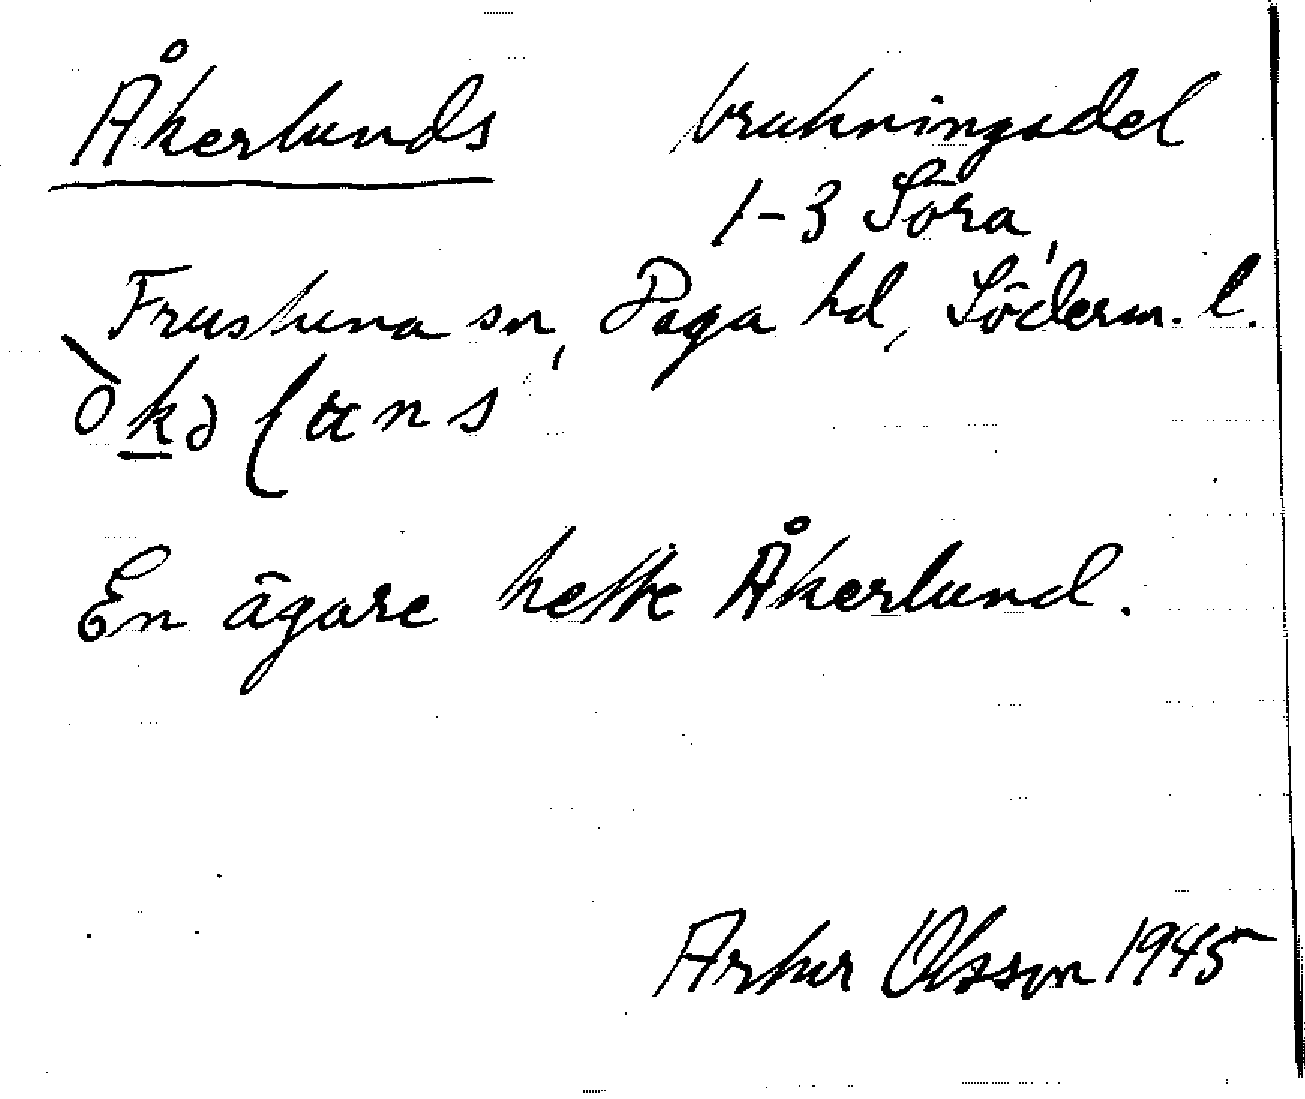 Åkerlunds brukningsdel
1-3 Söra,
Frustuna sn, Daga hd, Söderm. l.
En ägare hette Åkerlund.
Artur Olsson 1945